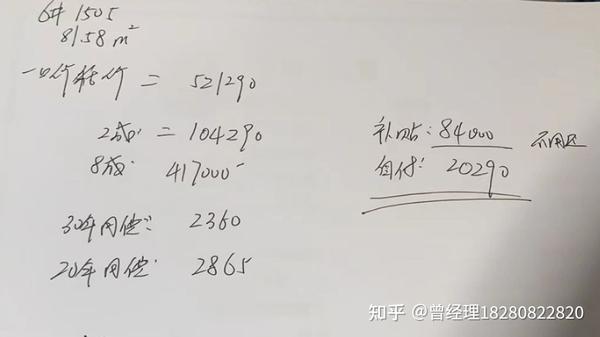 6# 1505
81.58 m²
一口价括价 = 521290
2成: = 104290
8成: 417000
30年月偿: 2360
20年月偿: 2865
补贴: 84000 不用还
自付: 20290
知乎 @曾经理18280822820